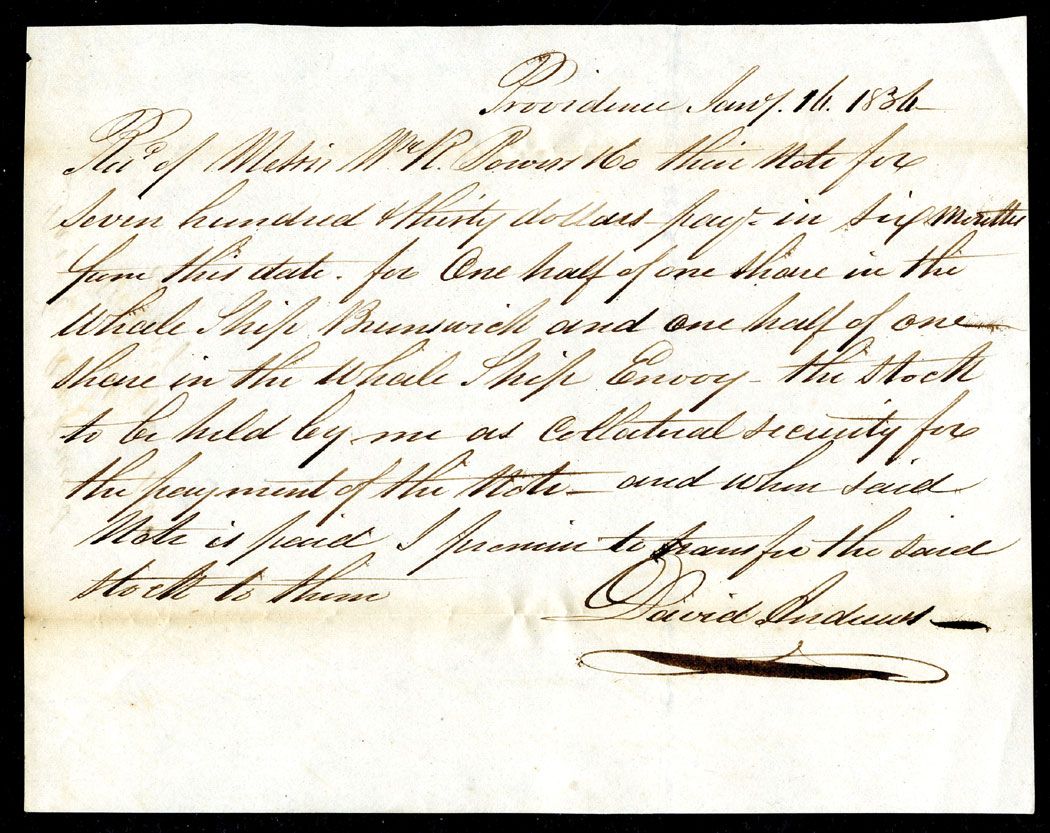 Providence Jany. 16. 1836
Recd of Messrs Wm R. Powers & Co their Note for
seven hundred & thirty dollars pay. in six Months
from this date. for One half of one share in the
Whale Ship Brunswick and one half of one
share in the Whale Ship Envoy - the stock
to be held by me as Collateral security for
the payment of the Note - and when said
Note is paid I promise to transfer the said
stock to them
David Andrews